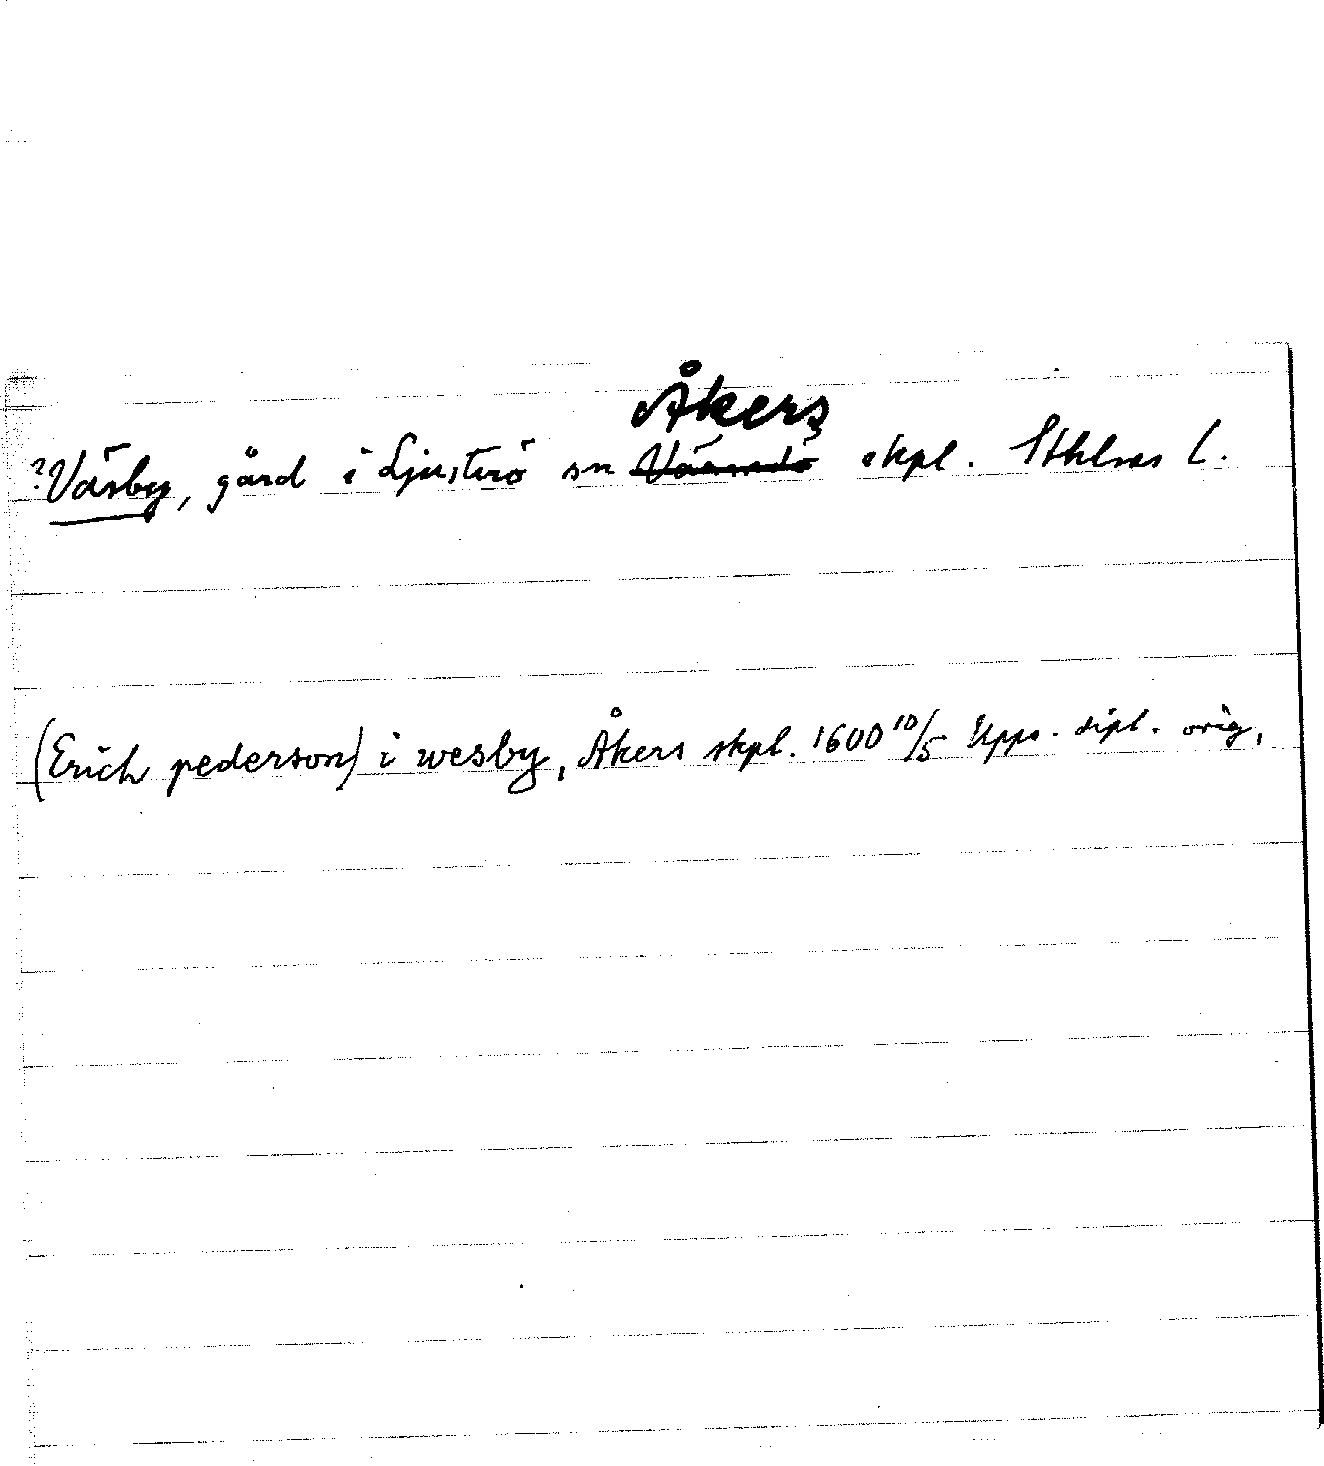 Åkers
?Väsby, gård i Ljusterö sn Värmdö skpl. Sthlms l.
(Erich pederson) i wesby, Åkers skpl. 1600 10/5 Upps. dipl. orig.